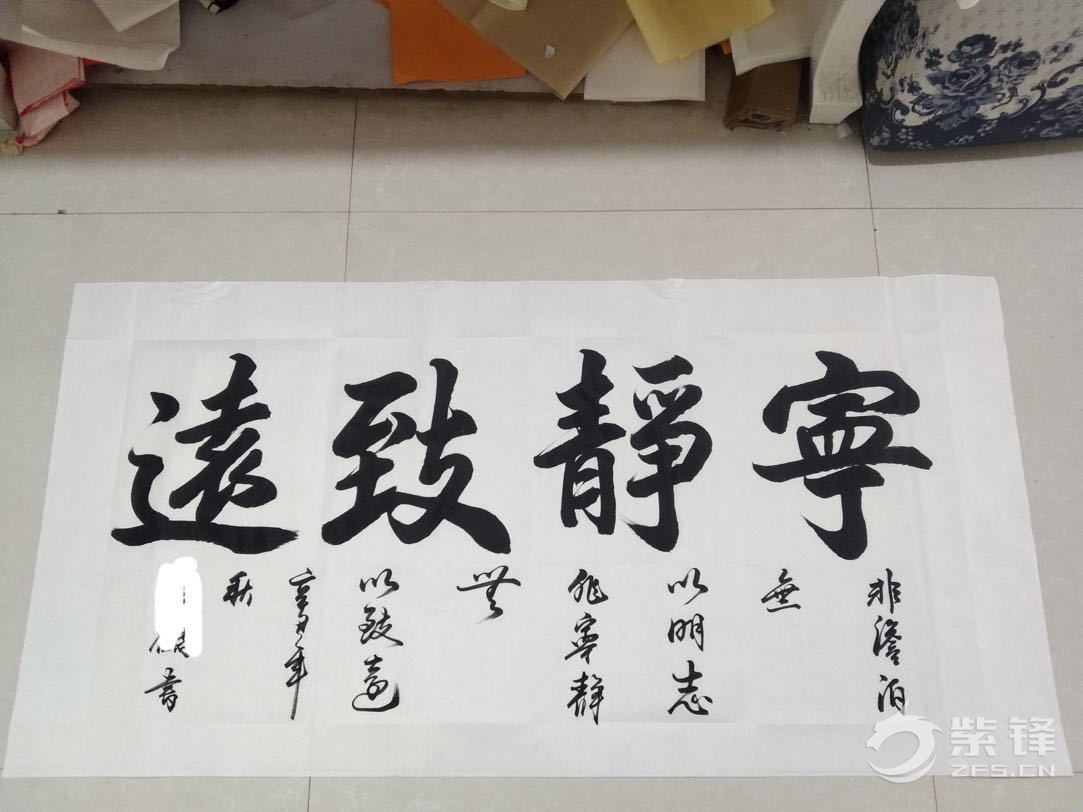 寧靜致遠
非澹泊
無
以明志
非寧靜
無
以致遠
辛丑年
秋
書
紫锋
ZFS.CN